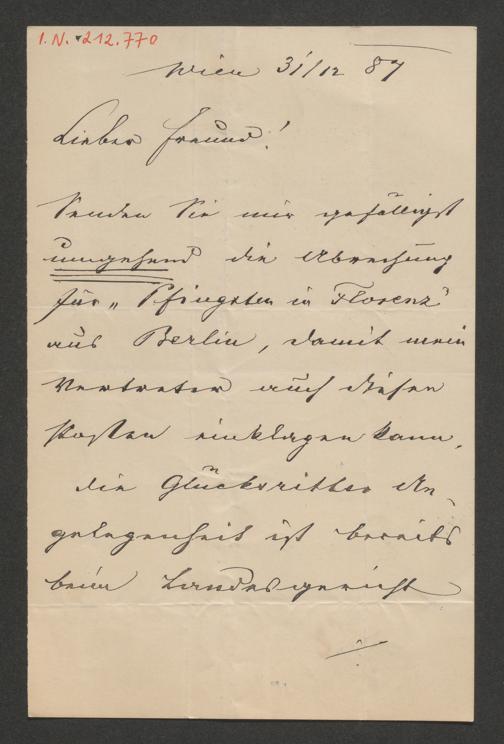 I. N. 212.770
Wien 31/12 87
Lieber Freund!
Senden Sie mir gefälligst
umgehend die Abrechung
für „Pfingsten in Florenz"
aus Berlin, damit mein
Vertreter auch diesen
Posten einklagen kann.
Die Glücksritter An-
gelegenheit ist bereits
beim Landesgericht
./.